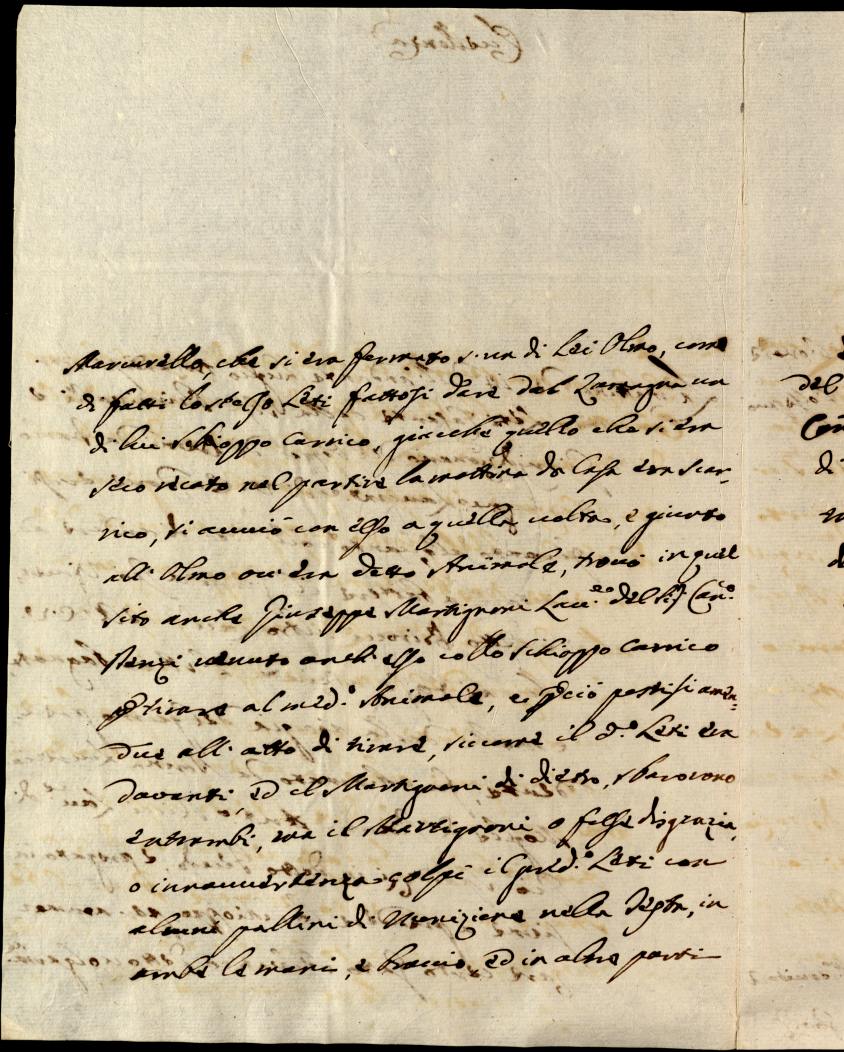 Marcirella, che si era fermato s. un di Lei Olmo, come
di fatti lo stesso Leti fattosi dare dal Zamagna un
di lui Schioppo carrico, giacchè quello che si era
seco recato nel partire la mattina da Casa era scar-
rico, si avviò con esso a quella volta, e giunto
all' Olmo ov' era detto Animale, trovò in quel
sito anche Giuseppe Martignoni Lav.re del Sig.r Can.o
venuto anch' esso collo Schioppo carrico
p tirare al med.o Animale, e pciò postisi amen-
due all' atto di tirare, siccome il d.o Leti era
davanti, ed il Martignoni di dietro, sbarorono
entrambi, ma il Martignoni o fosse disgrazia,
o innavvertenza colpì il pred.o Leti con
alcuni pallini di Munizione nella Testa, in
ambe le mani, e braccio, ed in altre parti
del
di